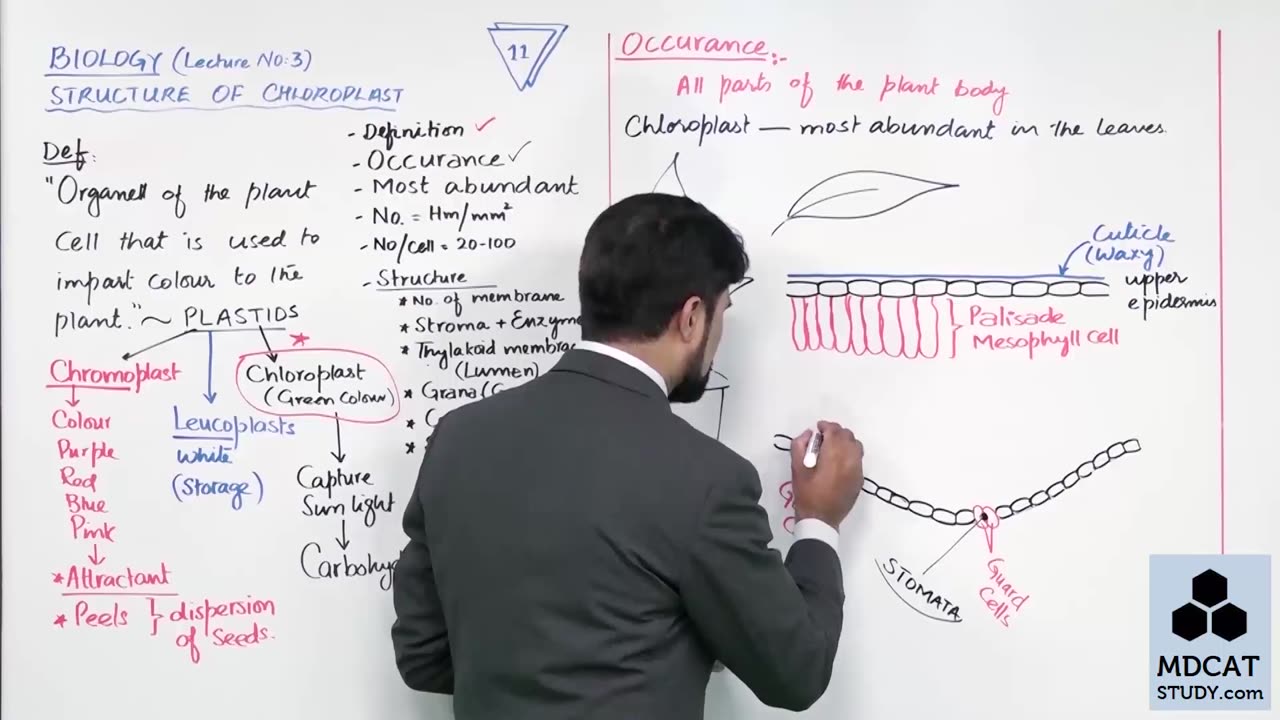 BIOLOGY (Lecture No:3)
STRUCTURE OF CHLOROPLAST
11
Def:
"Organell of the plant
Cell that is used to
impart colour to the
plant." ~ PLASTIDS
Chromoplast
Colour
Purple
Red
Blue
Pink
*Attractant
* Peels } dispersion
of Seeds.
Leucoplasts
White
(Storage)
*
Chloroplast
(Green Colour)
Capture
Sun light
- Definition ✓
- Occurance ✓
- Most abundant
- No. = Hm/mm²
- No/cell = 20-100
- Structure
* No. of membrane
* Stroma +
* Thylakoid
(Lumen)
* Grana
Occurance:-
All parts of the plant body
Chloroplast — most abundant in the leaves.
Cuticle
(Waxy)
upper
epidermis
Palisade
Mesophyll Cell
STOMATA
Guard
Cells
MDCAT
STUDY.com